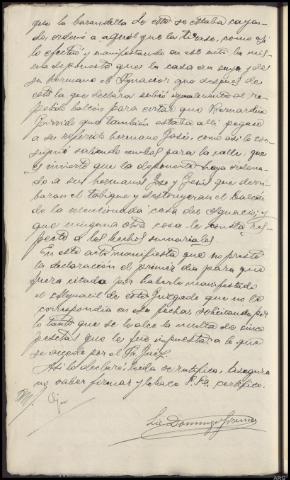 que la barandilla de éste se estaba cayen-
do, ordenó a aquel que la tirase, como así
lo efectuó y manifestando en ese acto la mis-
ma deponente que la casa era suya y de
su hermano D. Ignacio; que después de
esto la que declara subió nuevamente al re-
petido balcón para evitar que Bernardino
que también estaba allí, pegase
a su referido hermano José, como así lo con-
siguió saliendo ambos para la calle; que
es incierto que la deponente haya ordena-
do a sus hermanos José y Jesús que derri-
baran el tabique y destruyeran el balcón
de la mencionada casa del Ignacio; y
que ninguna otra cosa le consta res-
pecto a los hechos sumariales.
En este acto manifiesta que no prestó
la declaración el primer día para que
fuera citada por haberle manifestado
el Alguacil de este Juzgado que no le
correspondía en esa fecha, solicitando por
lo tanto que se le alce la multa de cinco
pesetas que le fué impuesta a lo que
se accede por el Sr. Juez.
Así lo declaró, leída se ratifica, asegura
no saber firmar y lo hace S.Sª, certifico.
Domingo